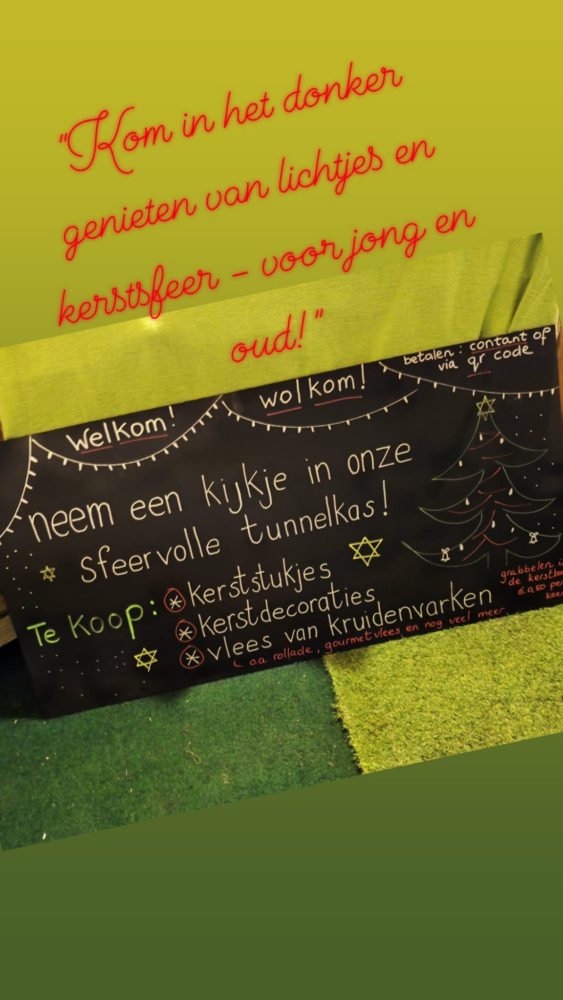 "Kom in het donker
genieten van lichtjes en
kerstsfeer - voor jong en
oud!"
Welkom!
wolkom!
betalen: contant of
via qr code
neem een kijkje in onze
sfeervolle tunnelkas!
Te Koop:
kerststukjes
kerstdecoraties
vlees van kruidenvarken
a.a. rollade, gourmetvlees en nog veel meer
grabbelen
de
€0,50 per